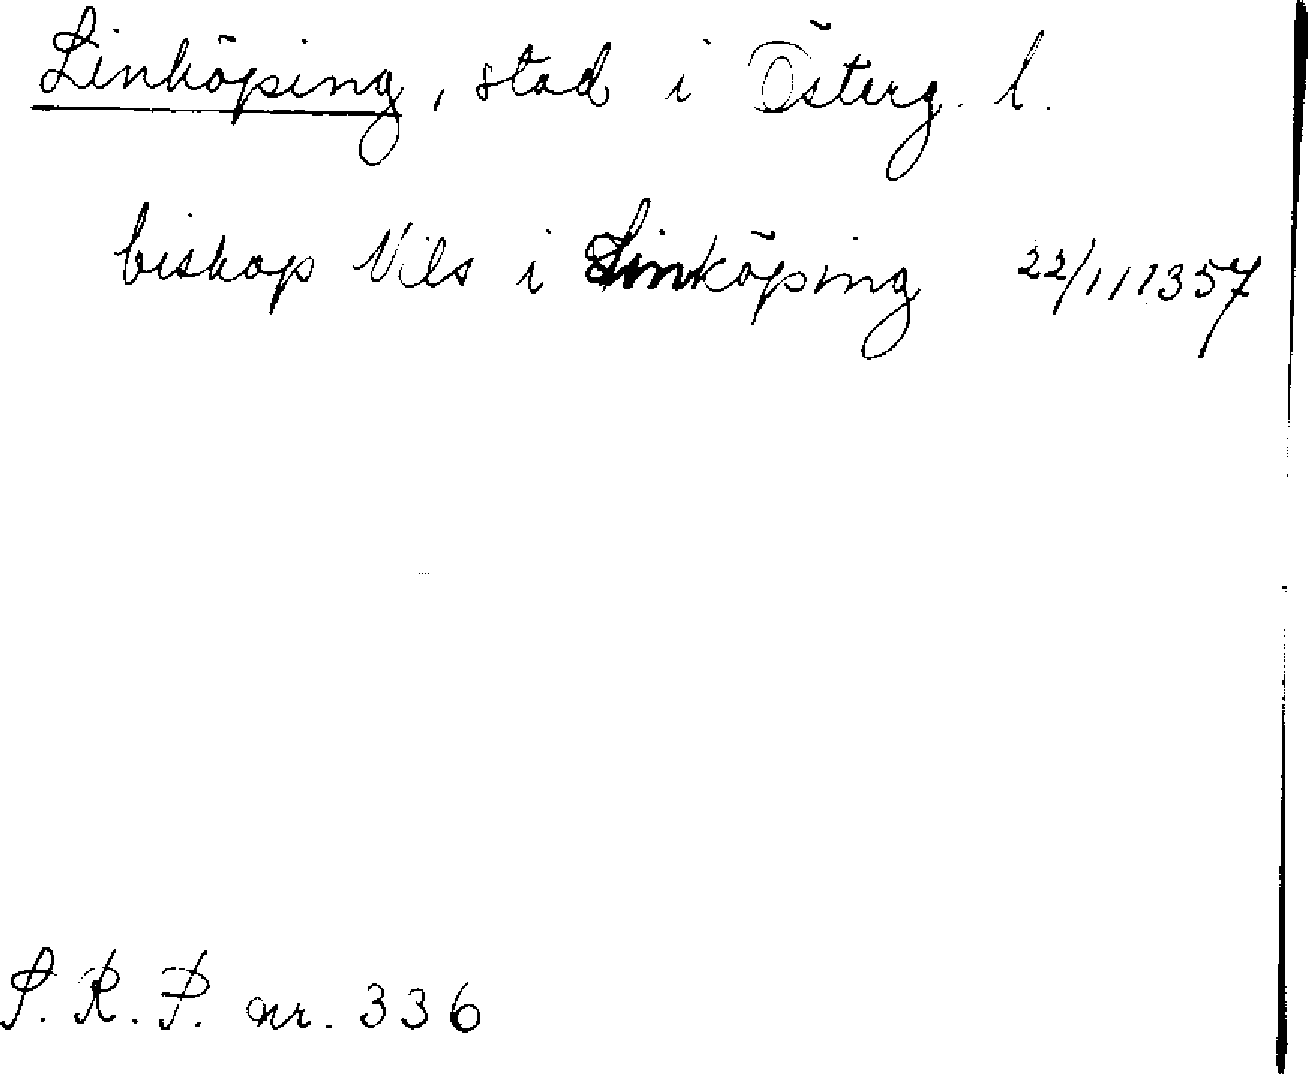 Linköping, stad i Österg. l.
biskop Nils i Linköping 22/11 1357
S. R. P. nr. 336